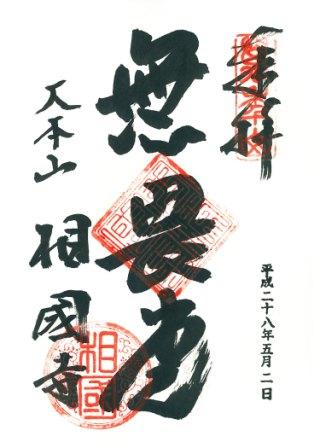 奉拝
平成二十八年五月二日
無畏堂
大本山 相國寺
相國